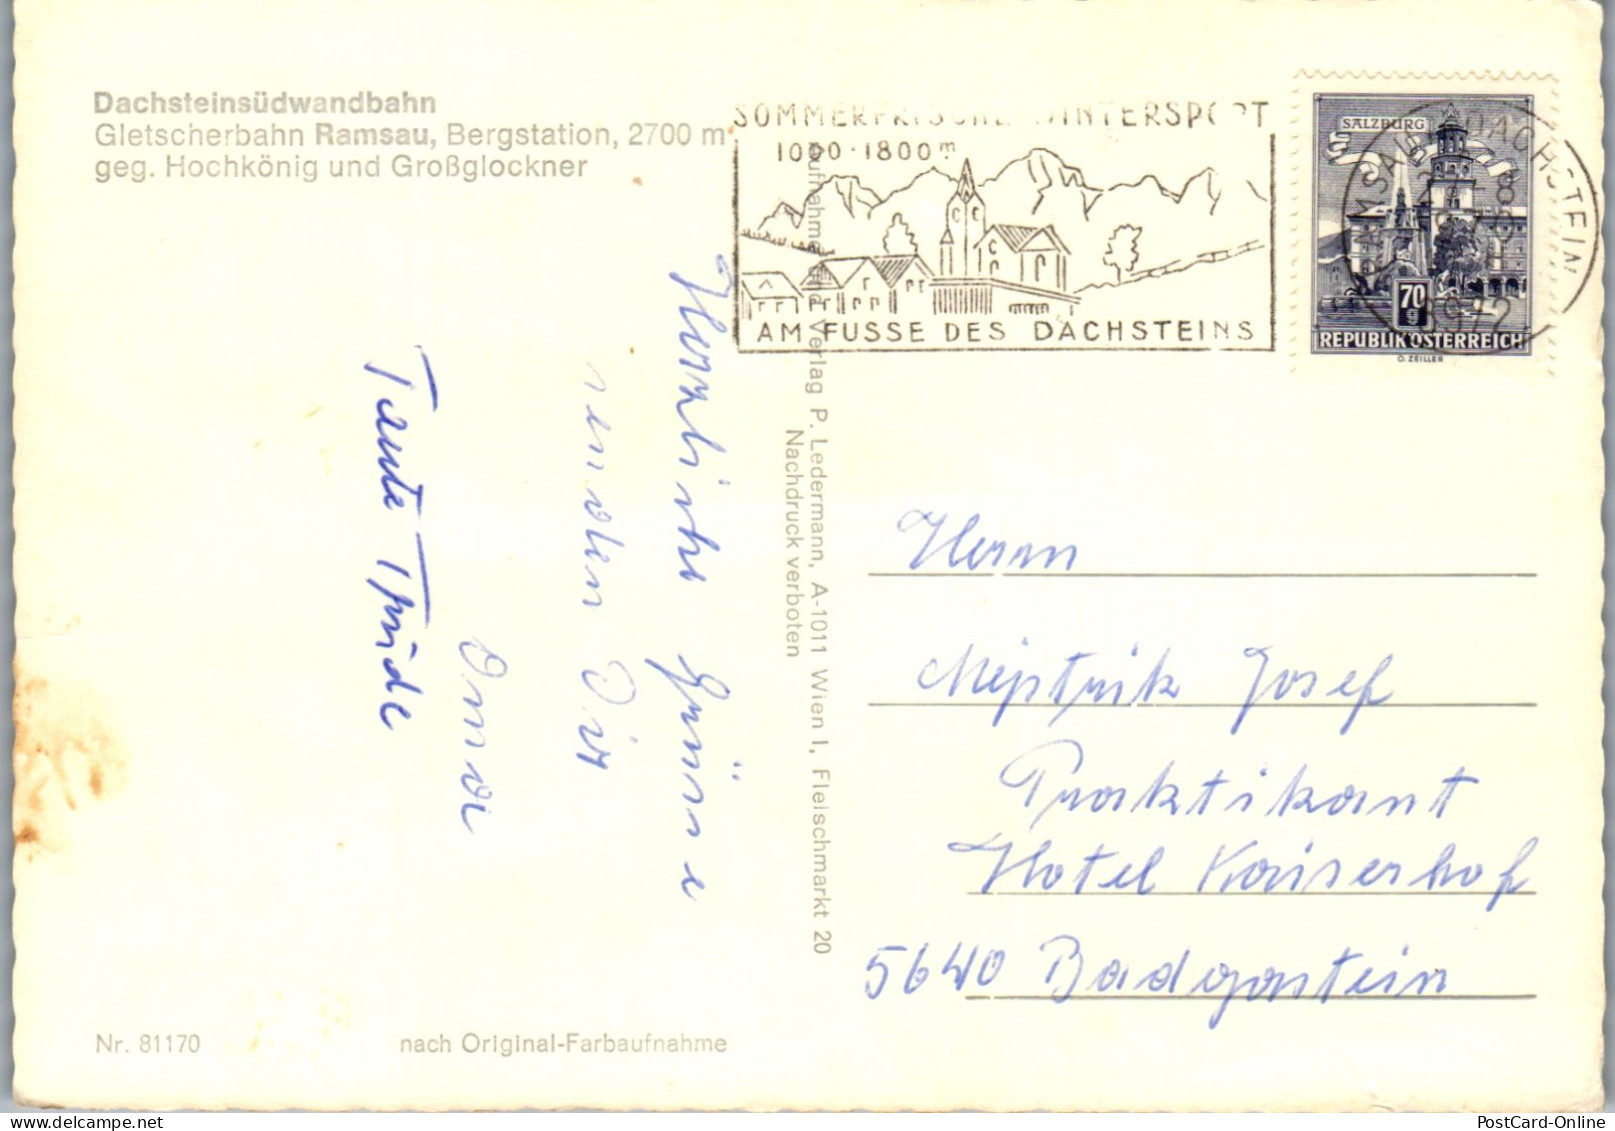 Dachsteinsüdwandbahn
Gletscherbahn Ramsau, Bergstation, 2700 m
geg. Hochkönig und Großglockner
SOMMERFRISCHE WINTERSPORT
1000-1800 m
AM FUSSE DES DACHSTEINS
SALZBURG
70 g
REPUBLIK ÖSTERREICH
O. ZEILLER
RAMSAU AM DACHSTEIN
8972
Herzliche Grüsse
senden Dir
Omar
Tante Trude
Aufnahme und Verlag P. Ledermann, A-1011 Wien I, Fleischmarkt 20
Nachdruck verboten
Herrn
Mejstrik Josef
Praktikant
Hotel Kaiserhof
5640 Badgastein
Nr. 81170
nach Original-Farbaufnahme
PostCard-Online